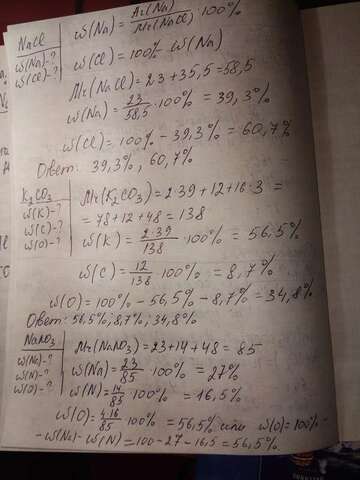 NaCl
ω(Na) = Ar(Na)/Mr(NaCl) · 100%
ω(Na)-?
ω(Cl)-?
ω(Cl) = 100% - ω(Na)
Mr(NaCl) = 23 + 35,5 = 58,5
ω(Na) = 23/58,5 · 100% = 39,3%
ω(Cl) = 100% - 39,3% = 60,7%
Ответ: 39,3%, 60,7%
K₂CO₃
ω(K)-?
ω(C)-?
ω(O)-?
Mr(K₂CO₃) = 2·39 + 12 + 16·3 =
= 78 + 12 + 48 = 138
ω(K) = 2·39/138 · 100% = 56,5%
ω(C) = 12/138 · 100% = 8,7%
ω(O) = 100% - 56,5% - 8,7% = 34,8%
Ответ: 56,5%; 8,7%; 34,8%
NaNO₃
ω(Na)-?
ω(N)-?
ω(O)-?
Mr(NaNO₃) = 23 + 14 + 48 = 85
ω(Na) = 23/85 · 100% = 27%
ω(N) = 14/85 · 100% = 16,5%
ω(O) = 100% = 56,5% или ω(O) = 100% -
- ω(Na) - ω(N) = 100 - 27 - 16,5 = 56,5%